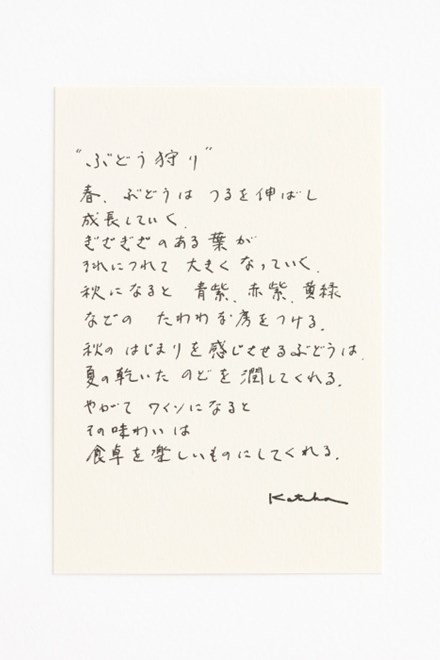 "ぶどう狩り"
春、ぶどうは つるを伸ばし
成長していく。
ぎざぎざのある葉が
それにつれて 大きく なっていく。
秋になると 青紫、赤紫、黄緑
などの たわわな房をつける。
秋の はじまりを感じさせるぶどうは、
夏の乾いた のどを潤してくれる。
やがて ワインになると
その味わいは
食卓を楽しいものにしてくれる。